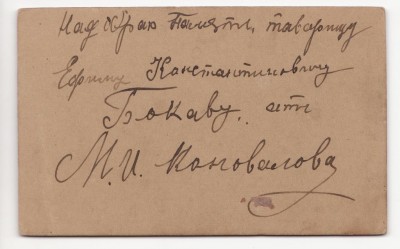 Над Обраю Память, таварищу
Ефиму Константиновичу
Бокаву, отъ
М. И. Коновалова